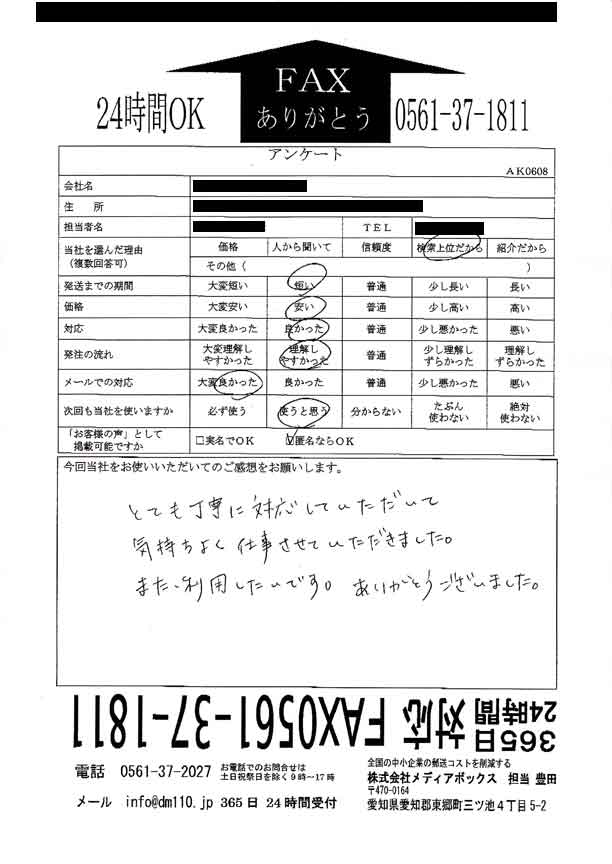 FAX
ありがとう
24時間OK
0561-37-1811
アンケート
AK0608
会社名
住 所
担当者名 TEL
当社を選んだ理由
(複数回答可)
価格 人から聞いて 信頼度 検索上位だから 紹介だから
その他( )
発送までの期間 大変短い 短い 普通 少し長い 長い
価格 大変安い 安い 普通 少し高い 高い
対応 大変良かった 良かった 普通 少し悪かった 悪い
発注の流れ 大変理解しやすかった 理解しやすかった 普通 少し理解しずらかった 理解しずらかった
メールでの対応 大変良かった 良かった 普通 少し悪かった 悪い
次回も当社を使いますか 必ず使う 使うと思う 分からない たぶん使わない 絶対使わない
「お客様の声」として
掲載可能ですか
□実名でOK ☑匿名ならOK
今回当社をお使いいただいてのご感想をお願いします。
とても丁寧に対応していただいて
気持ちよく仕事させていただきました。
また、利用したいです。ありがとうございました。
365日24時間対応 FAX0561-37-1811
電話 0561-37-2027 お電話でのお問合せは
土日祝祭日を除く9時~17時
メール info@dm110.jp 365日 24時間受付
全国の中小企業の郵送コストを削減する
株式会社メディアボックス 担当 豊田
〒470-0164
愛知県愛知郡東郷町三ツ池4丁目5-2